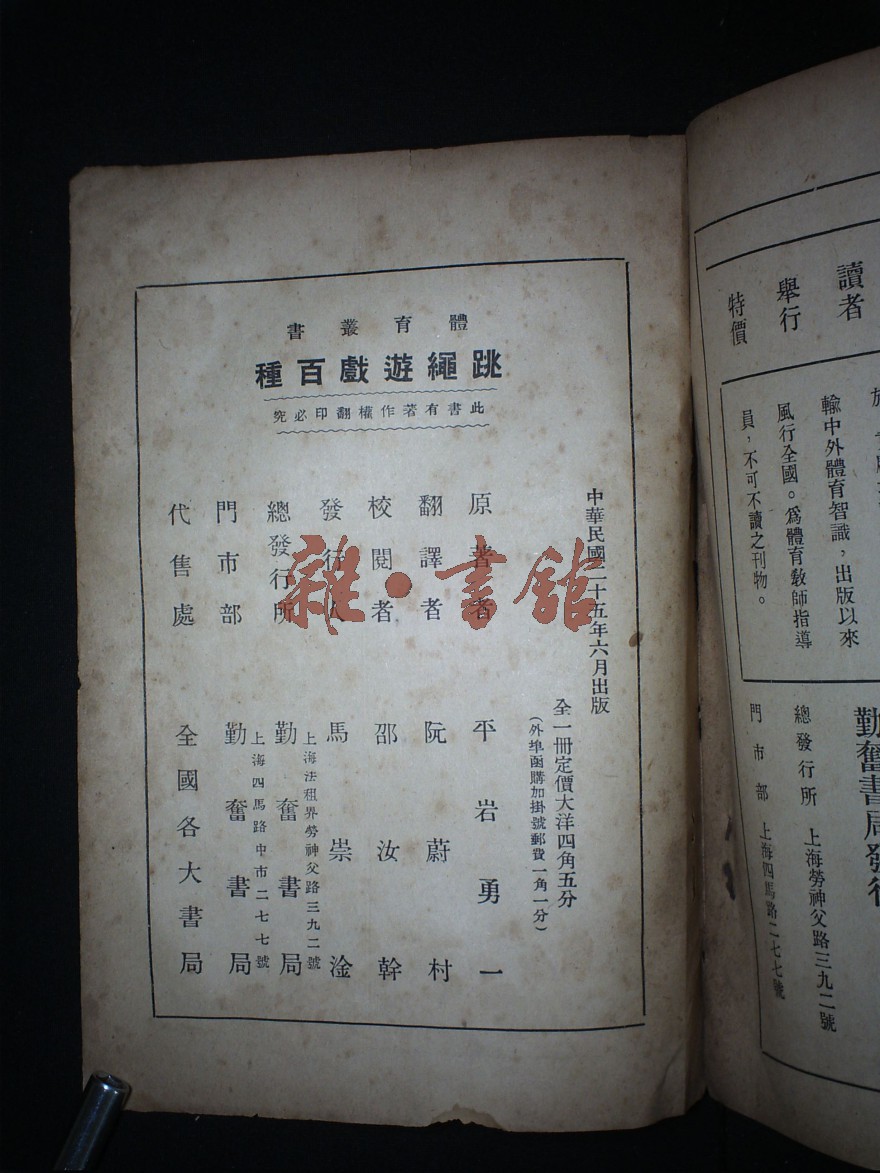 體育叢書
跳繩遊戲百種
此書有著作權翻印必究
中華民國二十五年六月出版
全一冊定價大洋四角五分
(外埠函購加掛號郵費一角一分)
原著者 平岩勇一
翻譯者 阮蔚村
校閱者 邵汝幹
發行人 馬崇淦
總發行所 上海法租界勞神父路三九二號
勤奮書局
門市部 上海四馬路中市二七七號
勤奮書局
代售處 全國各大書局
雜·書館
讀者
舉行
特價
輸中外體育智識,出版以來
風行全國。為體育教師指導
員,不可不讀之刊物。
勤奮書局發行
總發行所 上海勞神父路三九二號
門市部 上海四馬路二七七號